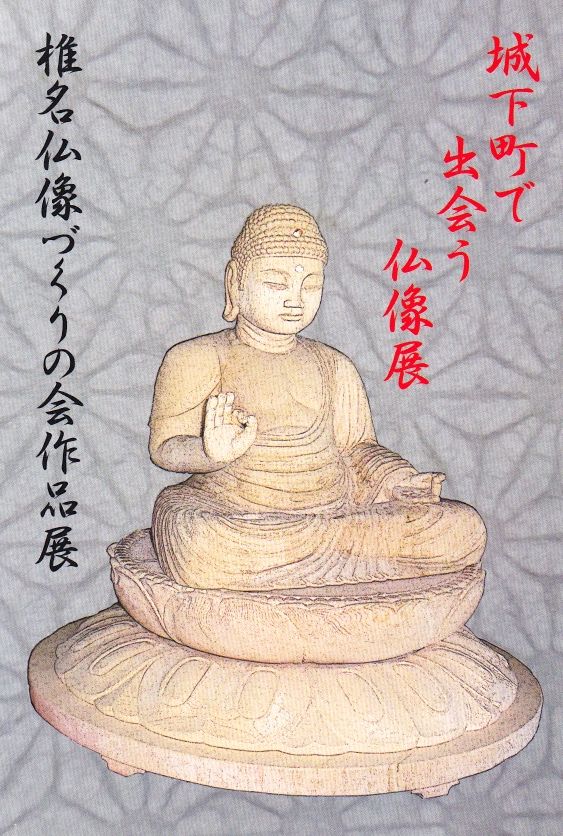 城下町で
出会う
仏像展
椎名仏像づくりの会作品展